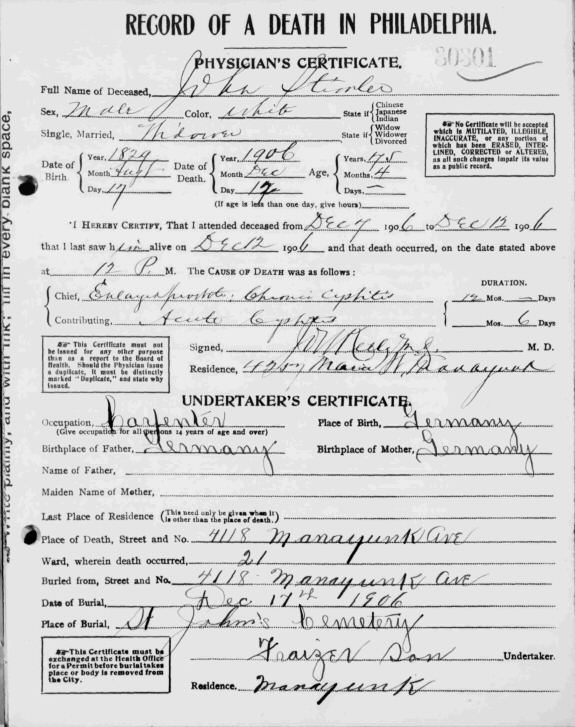 RECORD OF A DEATH IN PHILADELPHIA.
30301
PHYSICIAN'S CERTIFICATE.
Full Name of Deceased, John
Sex, Male Color, White State if { Chinese Japanese Indian
Single, Married, Widower State if { Widow Widower Divorced
No Certificate will be accepted which is MUTILATED, ILLEGIBLE, INACCURATE, or any portion of which has been ERASED, INTERLINED, CORRECTED or ALTERED, as all such changes impair its value as a public record.
Date of Birth { Year, 1829 Month Aug Day, 17
Date of Death. { Year, 1906 Month Dec Day 12
Age, { Years, 75 Months, 4 Days, —
(If age is less than one day, give hours)
I HEREBY CERTIFY, That I attended deceased from Dec 7 1906 to Dec 12 1906
that I last saw him alive on Dec 12 1906 and that death occurred, on the date stated above
at 12 P. M. THE CAUSE OF DEATH was as follows:
DURATION.
Chief, Enlarged prostate. Chronic Cystitis 12 Mos. — Days
Contributing, Acute Cystitis Mos. 6 Days
This Certificate must not be issued for any other purpose than as a report to the Board of Health. Should the Physician issue a duplicate, it must be distinctly marked "Duplicate," and state why issued.
Signed, M. D.
Residence, 4257 Main St, Manayunk
UNDERTAKER'S CERTIFICATE.
Occupation, Carpenter Place of Birth, Germany
(Give occupation for all persons 14 years of age and over)
Birthplace of Father, Germany Birthplace of Mother, Germany
Name of Father,
Maiden Name of Mother,
Last Place of Residence (This need only be given when it is other than the place of death.)
Place of Death, Street and No. 4118 Manayunk Ave
Ward, wherein death occurred, 21
Buried from, Street and No. 4118 Manayunk Ave
Date of Burial, Dec 17th 1906
Place of Burial, St John's Cemetery
This Certificate must be exchanged at the Health Office for a Permit before burial takes place or body is removed from the City.
Fraizer Son Undertaker.
Residence, Manayunk
Write plainly, and with ink; fill in every blank space,